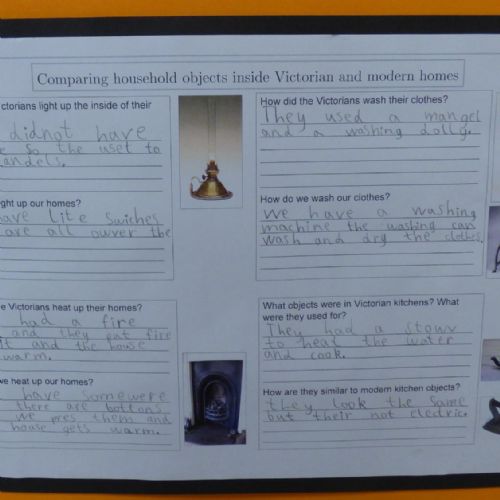 Comparing household objects inside Victorian and modern homes
ctorians light up the inside of their
didnot have
so the uset to
andels.
ght up our homes?
ave Lite Swiches
are all owver the
e Victorians heat up their homes?
had a fire
and they put fire
it and the house
warm.
we heat up our homes?
have somewere
there are bottons
we pres them and
house gets warm.
How did the Victorians wash their clothes?
They used a mangel
and a washing dolly.
How do we wash our clothes?
We have a washing
machine the washing can
wash and dry the clothes.
What objects were in Victorian kitchens? What
were they used for?
They had a stouv
to heat the water
and cook.
How are they similar to modern kitchen objects?
they look the same
but their not electric.